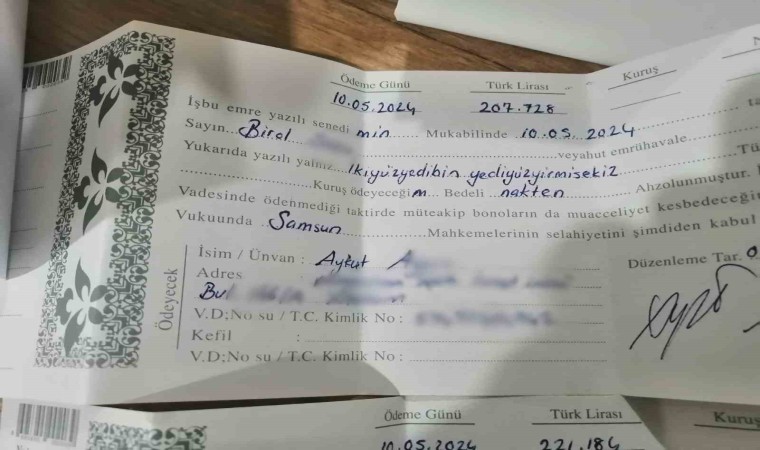 Ödeme Günü Türk Lirası Kuruş
10.05.2024 207.728
İşbu emre yazılı senedi min Mukabilinde 10.05.2024
Sayın Birol veyahut emrühavale
Yukarıda yazılı yalnız İkiyüzyedibin yediyüzyirmisekiz
Kuruş ödeyeceğim. Bedeli nakten Ahzolunmuştur.
Vadesinde ödenmediği taktirde müteakip bonoların da muacceliyet kesbedeceğin
Vukuunda Samsun Mahkemelerinin selahiyetini şimdiden kabul
İsim / Ünvan : Aykut
Düzenleme Tar.
Adres
Bu
V.D;No su / T.C. Kimlik No :
Kefil :
V.D;No su / T.C. Kimlik No :
Ödeyecek
Ödeme Günü Türk Lirası Kuruş
10.05.2024 221.184